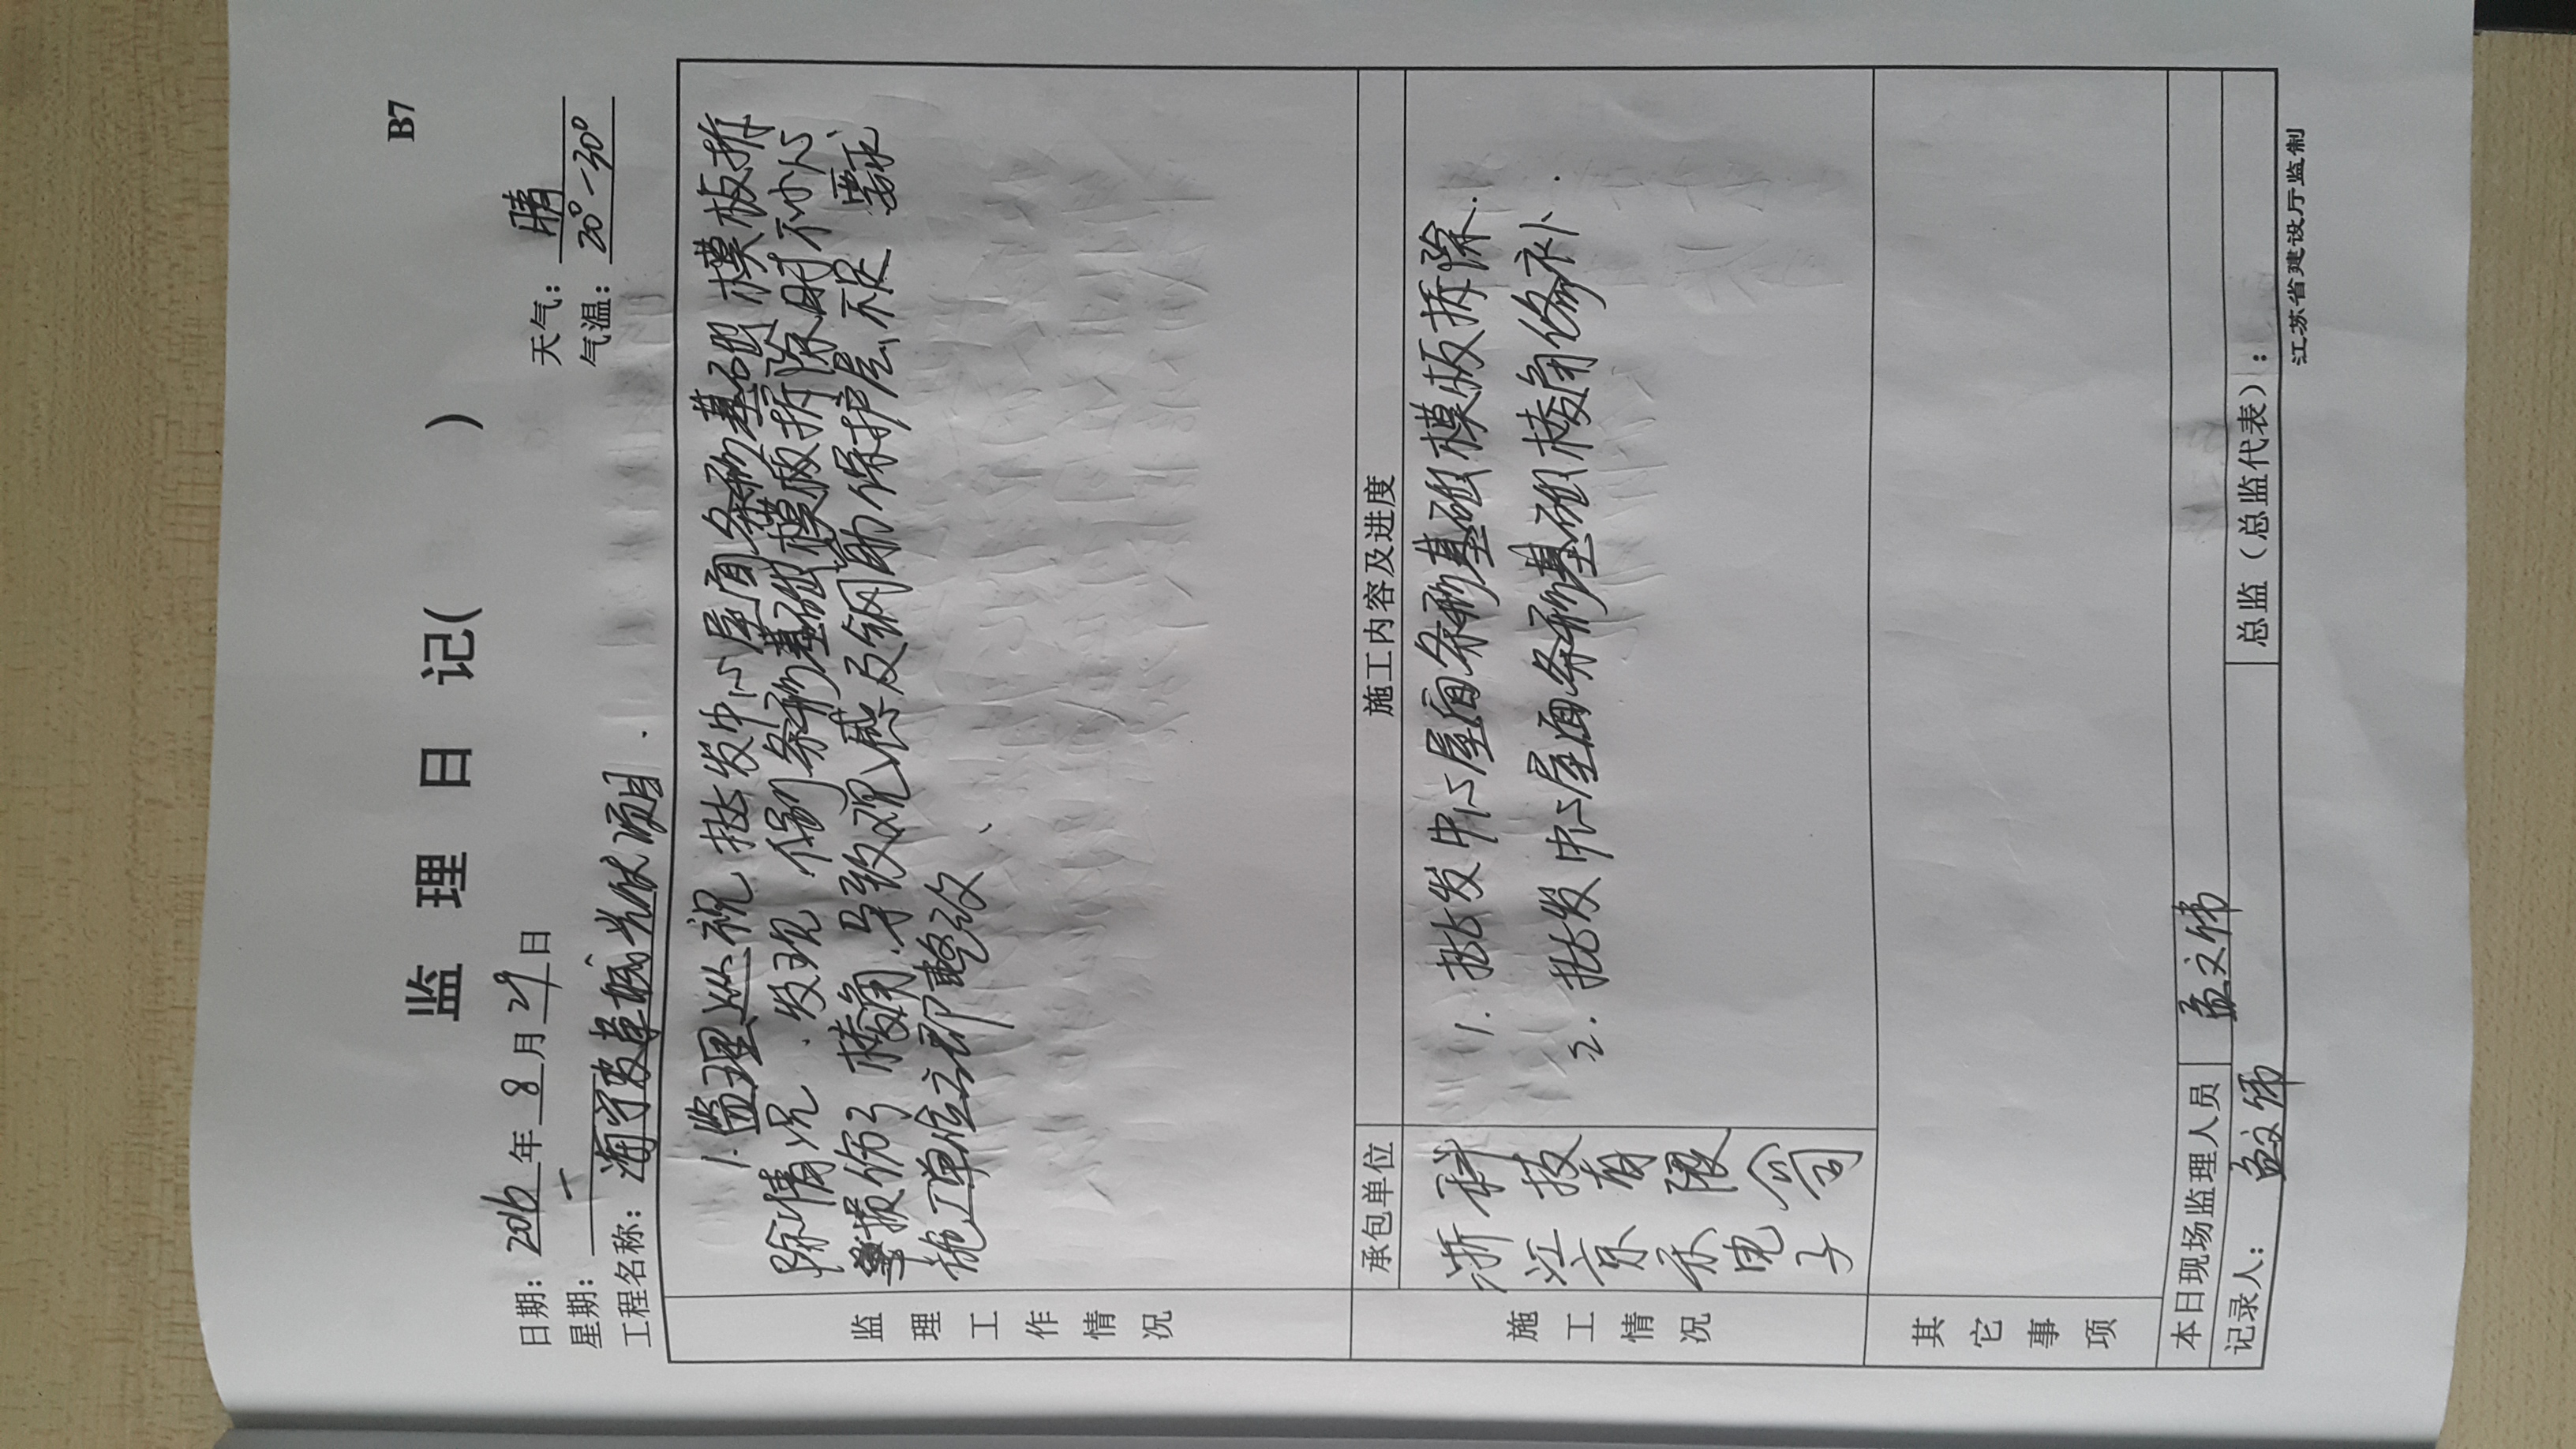 B7
监理日记( )
日期：2016年8月29日 天气：晴
星期：一 气温：20°-30°
工程名称：海宁皮革城光伏项目.
监理工作情况
1.监理巡视批发中心屋面条形基础模板拆
除情况.发现个别条形基础模板拆除时不小心
损伤了棱角.导致观感及钢筋保护层不足.要求
施工单位立即整改、
施工情况
承包单位 施工内容及进度
浙江京禾电子
科技有限公司
1.批发中心屋面条形基础模板拆除.
2.批发中心屋面条形基础棱角修补.
其它事项
本日现场监理人员 孟文伟
记录人：孟文伟 总监（总监代表）：
江苏省建设厅监制